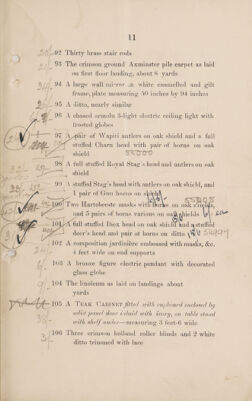 11
92 Thirty brass stair rods
93 The crimson ground Axminster pile carpet as laid
on first floor landing, about 8 yards
94 A large wall mirror in white enamelled and gilt
frame, plate measuring 50 inches by 94 inches
95 A ditto, nearly similar
96 A chased ormolu 3-light electric ceiling light with
frosted globes
97 A pair of Wapiti antlers on oak shield and a full
stuffed Charu head with pair of horns on oak
shield
98 A full stuffed Royal Stag's head and antlers on oak
shield
99 A stuffed Stag's head with antlers on oak shield, and
1 pair of Gnu horns on shield
100 Two Hartebeeste masks with horns on oak shields,
and 5 pairs of horns various on oak shields
101 A full stuffed Ibex head on oak shield and a stuffed
deer's head and pair of horns on ditto
102 A composition jardinière embossed with masks, &c.
4 feet wide on end supports
103 A bronze figure electric pendant with decorated
glass globe
104 The linoleum as laid on landings about
yards
105 A TEAK CABINET fitted with cupboard enclosed by
solid panel door inlaid with ivory, on table stand
with shelf under—measuring 3 feet 6 wide
106 Three crimson holland roller blinds and 2 white
ditto trimmed with lace